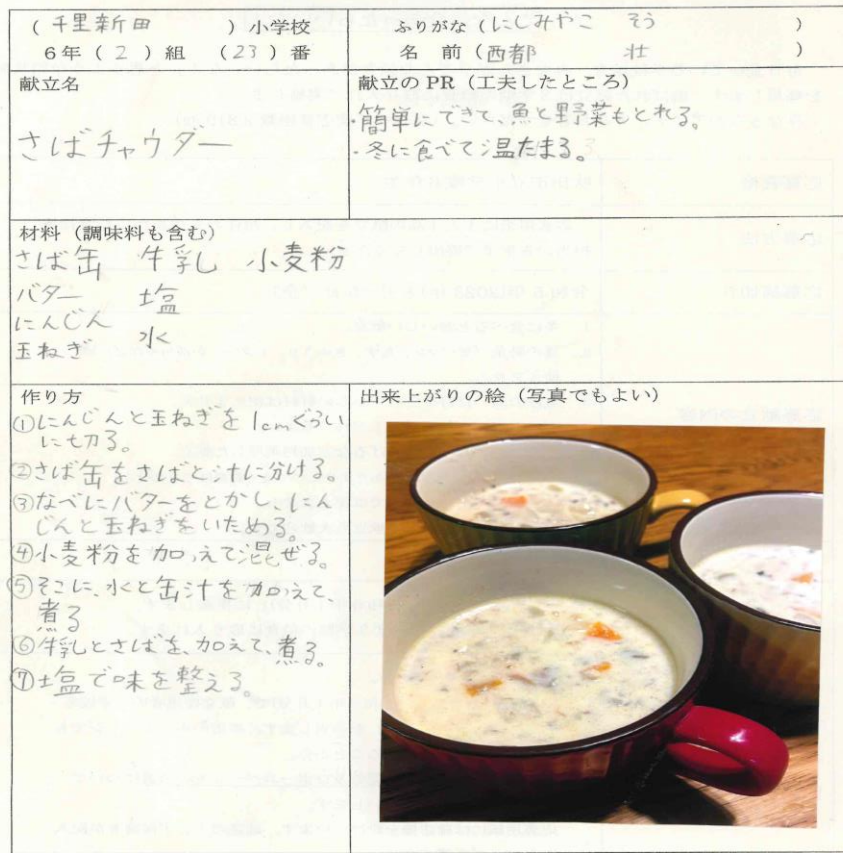 (千里新田)小学校
6年(2)組 (23)番
ふりがな(にしみやこ そう)
名 前(西都 壮)
献立名
さばチャウダー
献立のPR(工夫したところ)
・簡単にできて、魚と野菜もとれる。
・冬に食べて温たまる。
材料(調味料も含む)
さば缶 牛乳 小麦粉
バター 塩
にんじん 水
玉ねぎ
作り方
①にんじんと玉ねぎを1cmぐらい
に切る。
②さば缶をさばと汁に分ける。
③なべにバターをとかし、にん
じんと玉ねぎをいためる。
④小麦粉を加えて混ぜる。
⑤そこに、水と缶汁を加えて
煮る
⑥牛乳とさばを、加えて、煮る。
⑦塩で味を整える。
出来上がりの絵(写真でもよい)